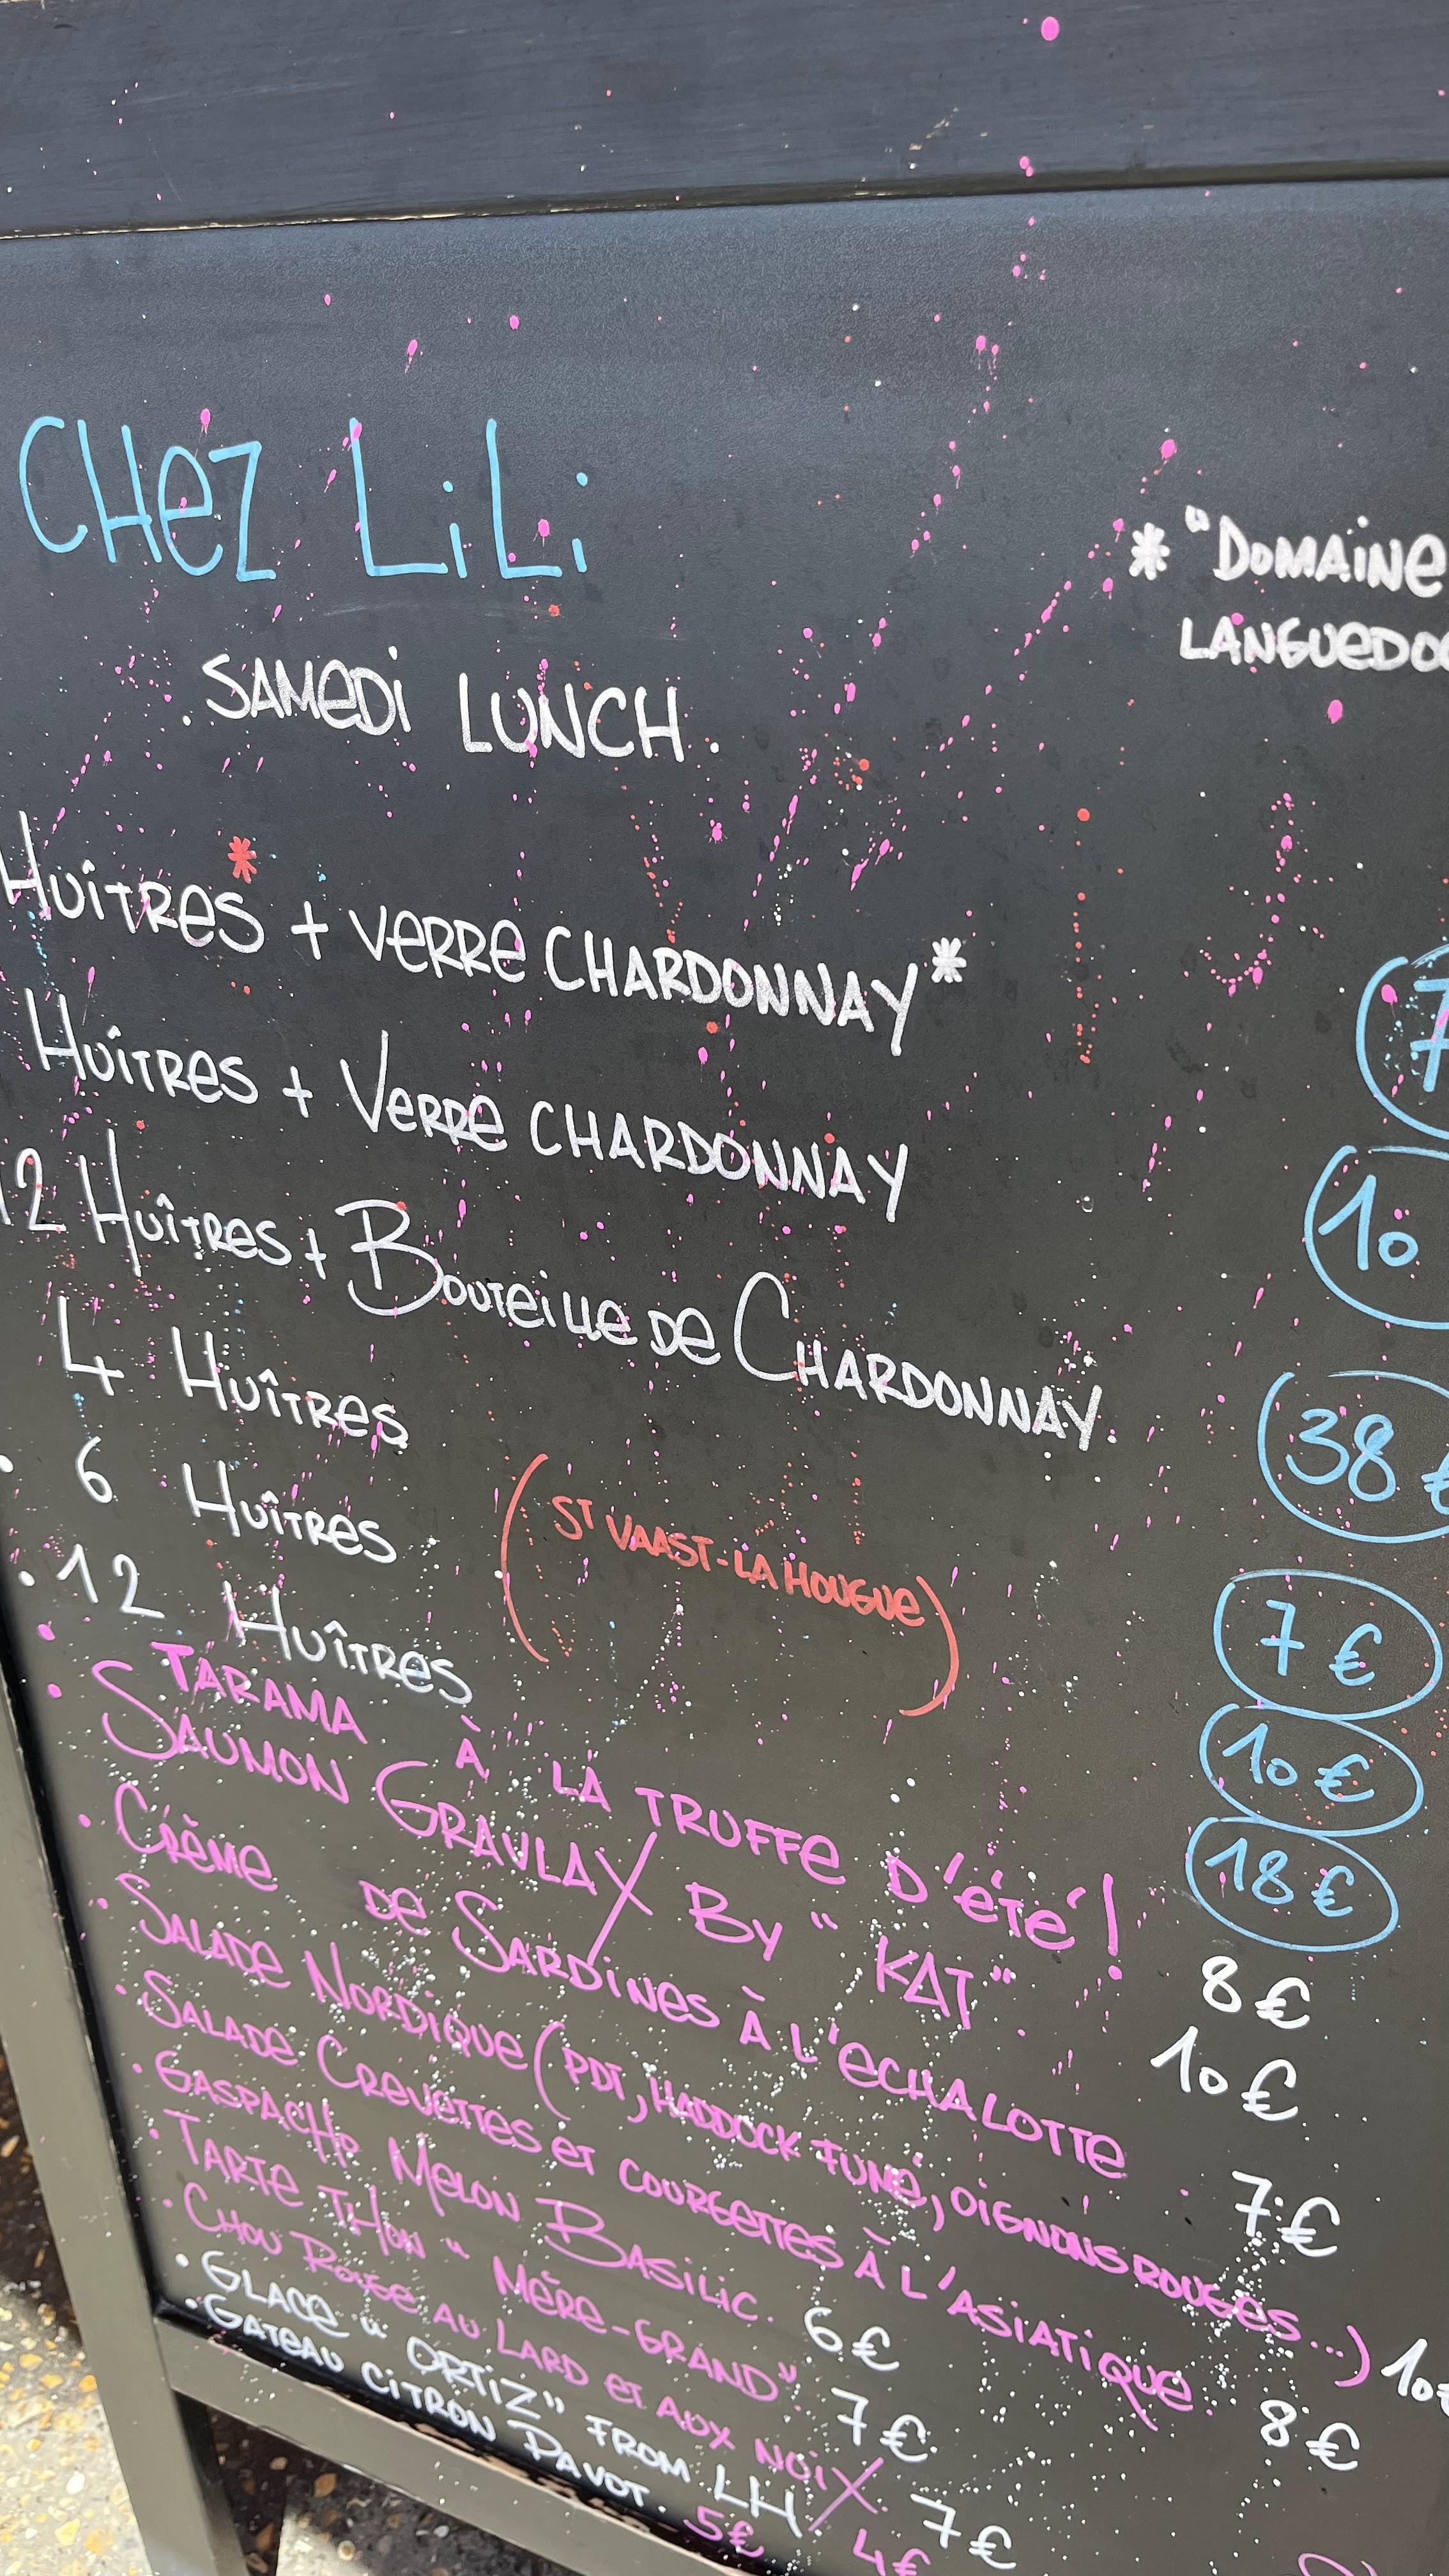 CHEZ LiLi
* "DOMAINE
LANGUEDOC
. SAMEDI LUNCH .
HUÎTRES* + VERRE CHARDONNAY* 7
HUÎTRES + VERRE CHARDONNAY 10
12 HUÎTRES + BOUTEILLE DE CHARDONNAY. 38 €
4 HUÎTRES 7 €
. 6 HUÎTRES (ST VAAST-LA HOUGUE) 10 €
. 12 HUÎTRES 18 €
. TARAMA À LA TRUFFE D'ÉTÉ ! 8 €
. SAUMON GRAVLAX BY "KAT" 10 €
. CRÈME DE SARDINES À L'ECHALOTTE 7 €
. SALADE NORDIQUE (PDT, HADDOCK FUMÉ, OIGNONS ROUGES...) 10
. SALADE CREVETTES ET COURGETTES À L'ASIATIQUE 8 €
. GASPACHO MELON BASILIC. 6 €
. TARTE THON "MÈRE-GRAND" 7 €
. CHOU ROUGE AU LARD ET AUX NOIX 7 €
. GLACE "ORTIZ" FROM LH 4 €
. GATEAU CITRON PAVOT. 5 €